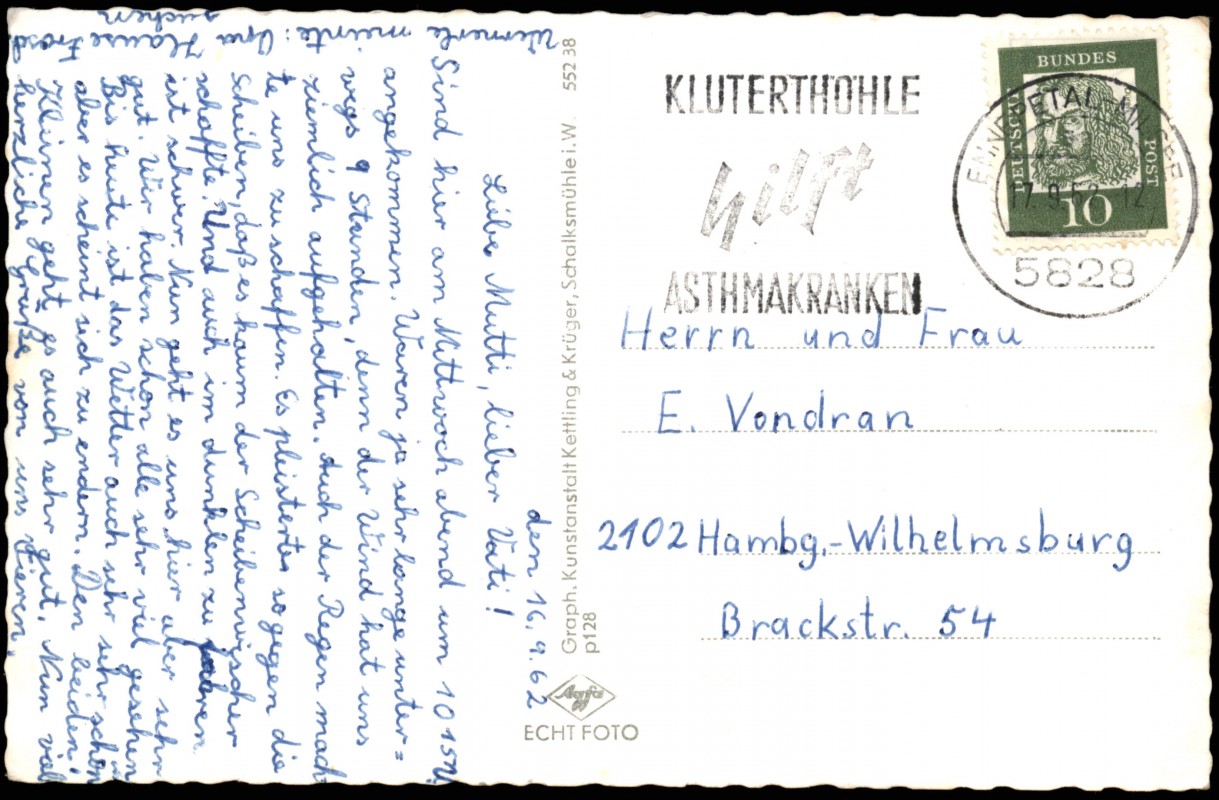 KLUTERTHÖHLE
hilft
ASTHMAKRANKEN
DEUTSCHE
BUNDES
POST
10
ENNEPETAL-MILSPE
17.9.62-12
5828
Herrn und Frau
E. Vondran
2102 Hambg.-Wilhelmsburg
Brackstr. 54
Graph. Kunstanstalt Kettling & Krüger, Schalksmühle i. W. 552 38
p128
Agfa
ECHT FOTO
den 16. 9. 62
Liebe Mutti, lieber Vati!
Sind hier am Mittwoch abend um 10 15
angekommen. Waren ja sehr lange unter=
wegs 9 Stunden, denn der Wind hat uns
ziemlich aufgehalten. Auch der Regen mach
te uns zu schaffen. Es pleisterte so gegen die
Scheiben, daß es kaum der Scheibenwischer
schaffte. Und auch im dunklen zu fahren
ist schwer. Nun geht es uns hier aber sehr
gut. Wir haben schon alle sehr viel gesehen
Bis heute ist das Wetter auch sehr sehr schön
aber es scheint sich zu endern. Den beiden
Kleinen geht es auch sehr gut. Nun viele
herzliche Grüße von uns Vieren.
Wernerle meinte: Opa Hause Frosch
suchen